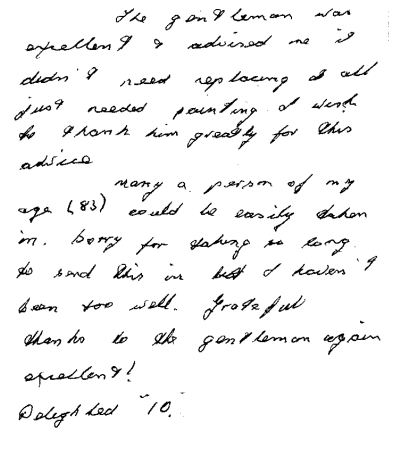 The gentleman was
excellent & advised me it
didn't need replacing at all
just needed painting I wish
to thank him greatly for this
advice
Many a person of my
age (83) could be easily taken
in. Sorry for taking so long
to send this in but I haven't
been too well. Grateful
thanks to the gentleman again
excellent!
Delighted "10."